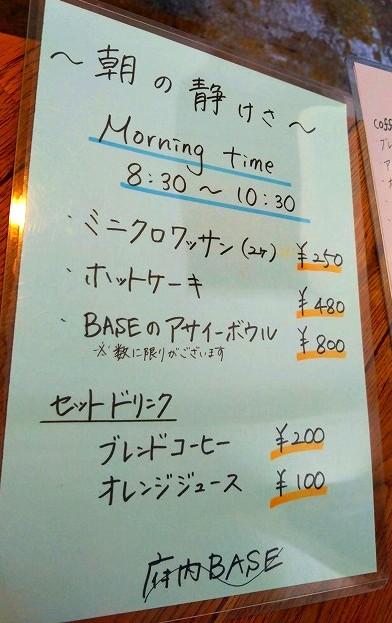 ～朝の静けさ～
Morning time
8:30～10:30
・ミニクロワッサン(2ケ) ¥250
・ホットケーキ ¥480
・BASEのアサイーボウル ¥800
※数に限りがございます
セットドリンク
ブレンドコーヒー ¥200
オレンジジュース ¥100
府内BASE